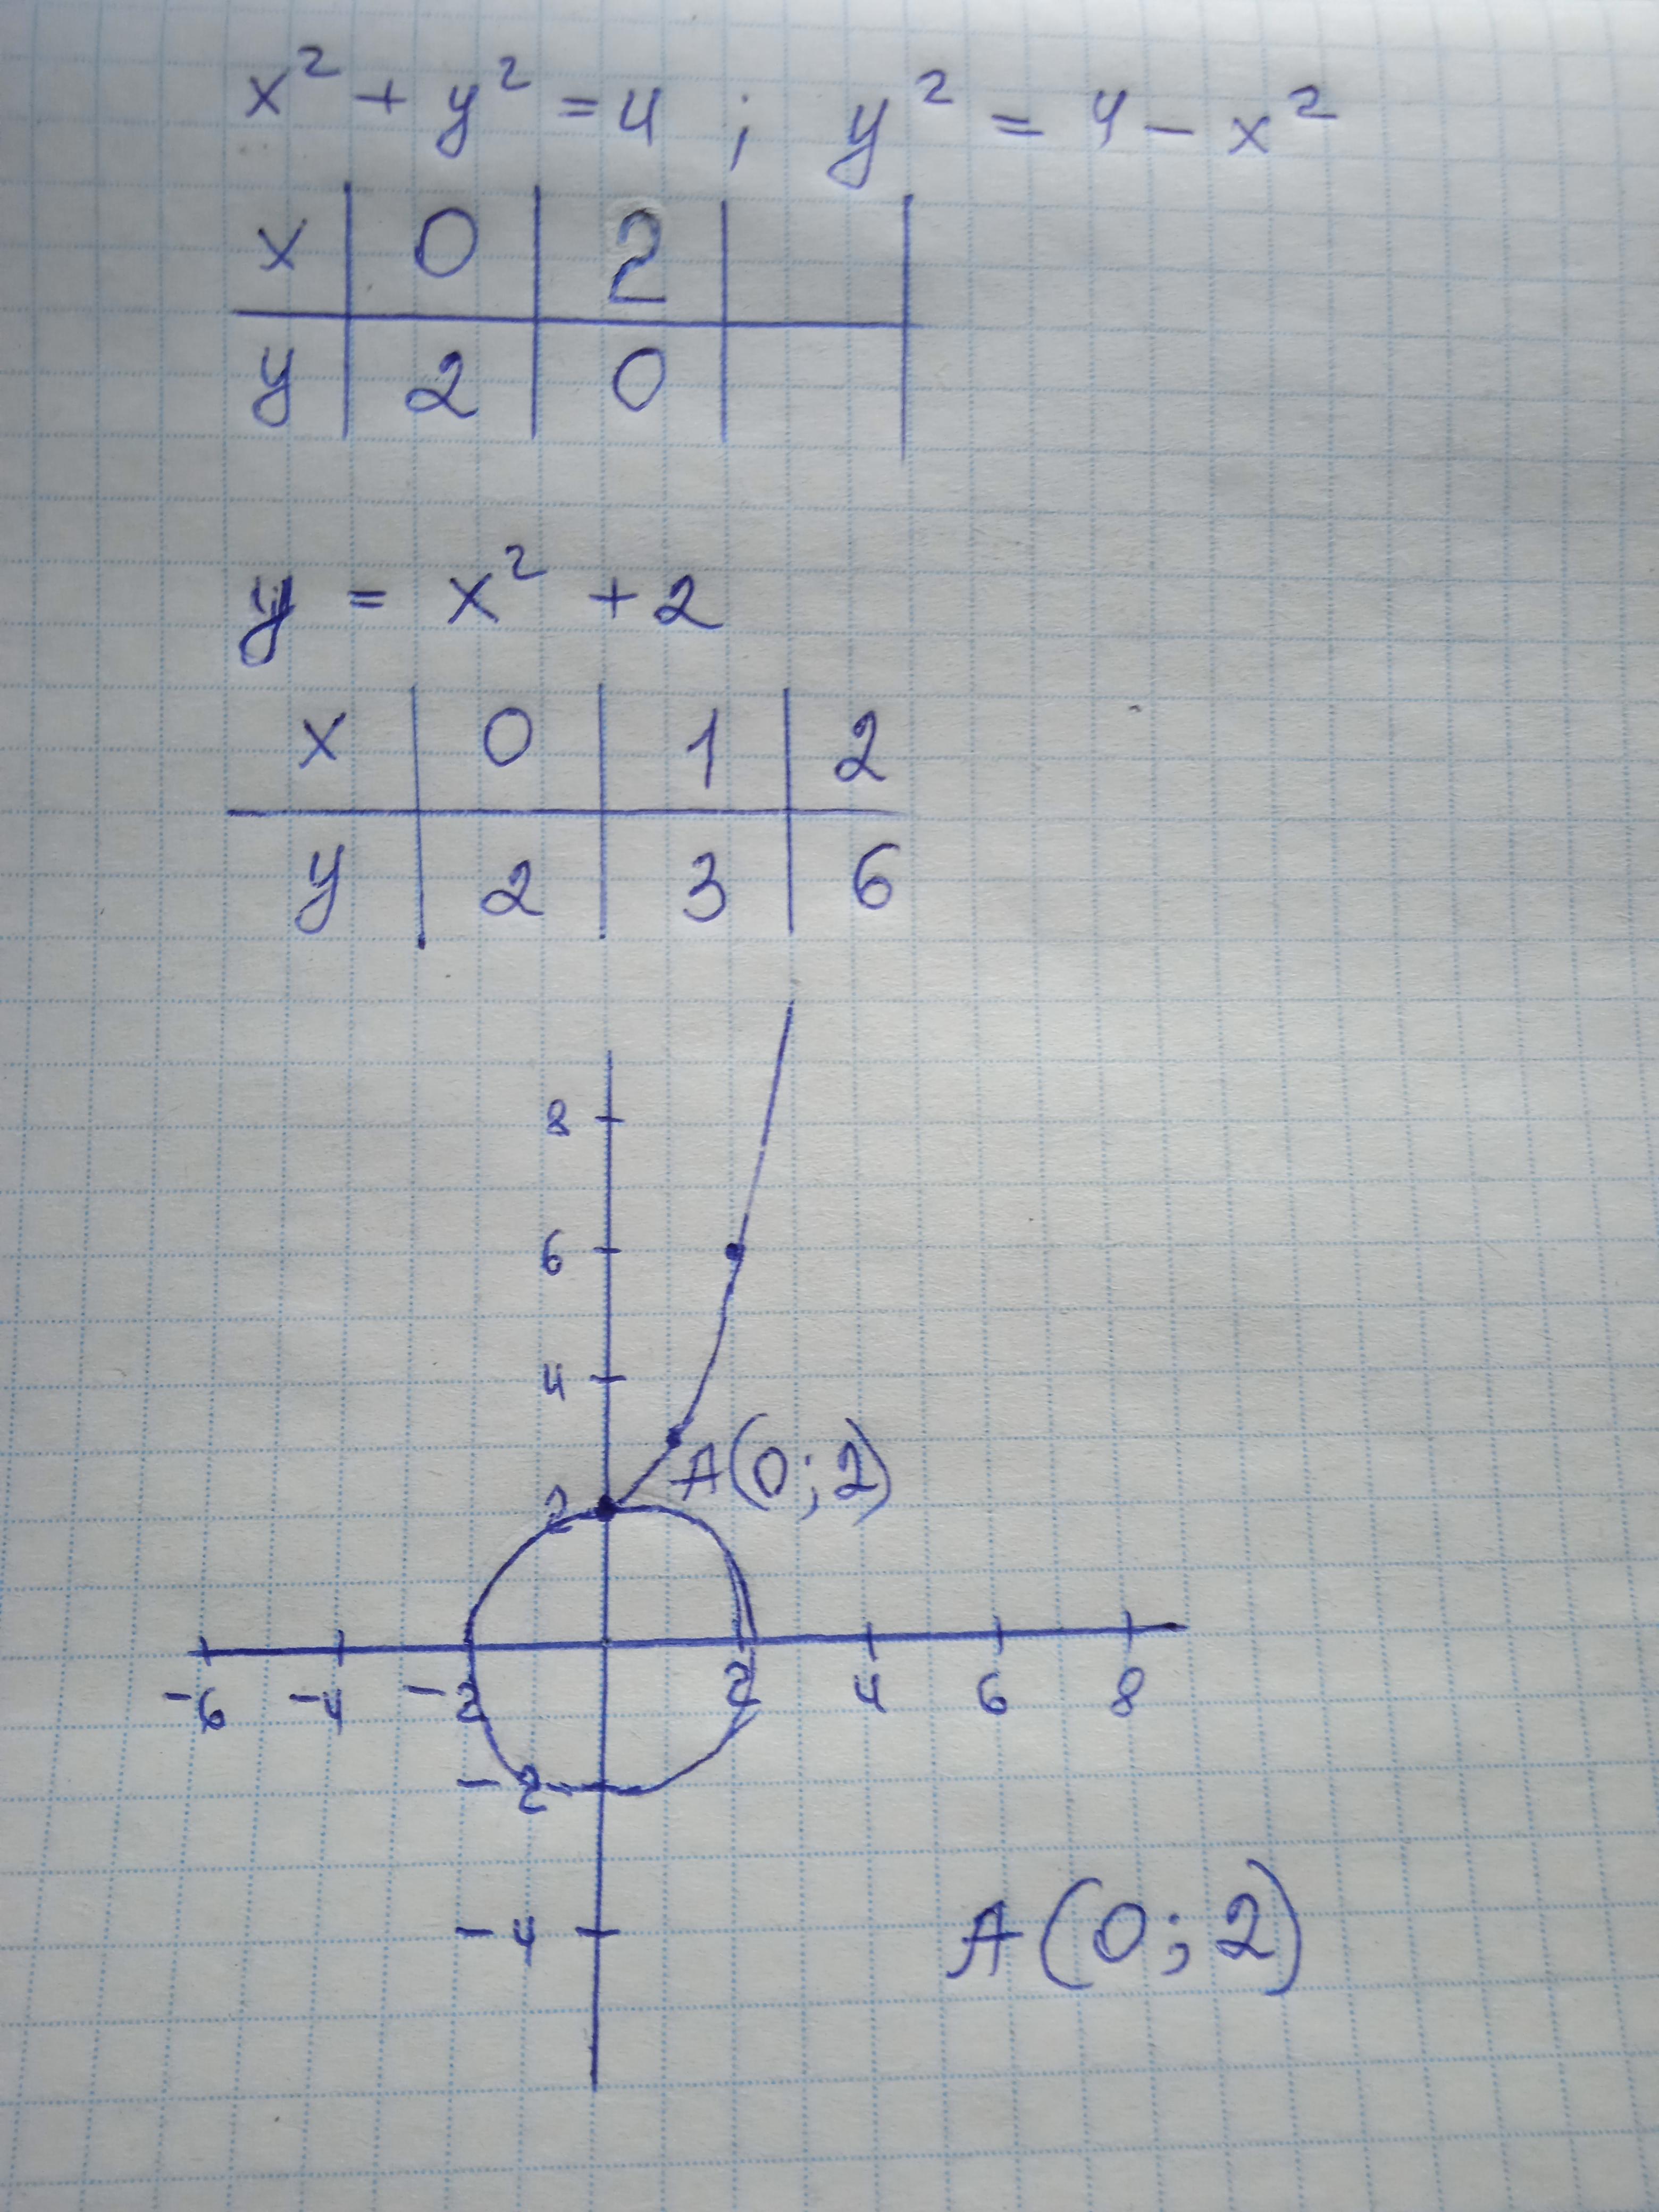 x² + y² = 4 ; y² = 4 - x²
x | 0 | 2 |
y | 2 | 0 |
y = x² + 2
x | 0 | 1 | 2
y | 2 | 3 | 6
8
6
4
A(0;2)
2
-6 -4 -2 2 4 6 8
-2
-4
A(0;2)